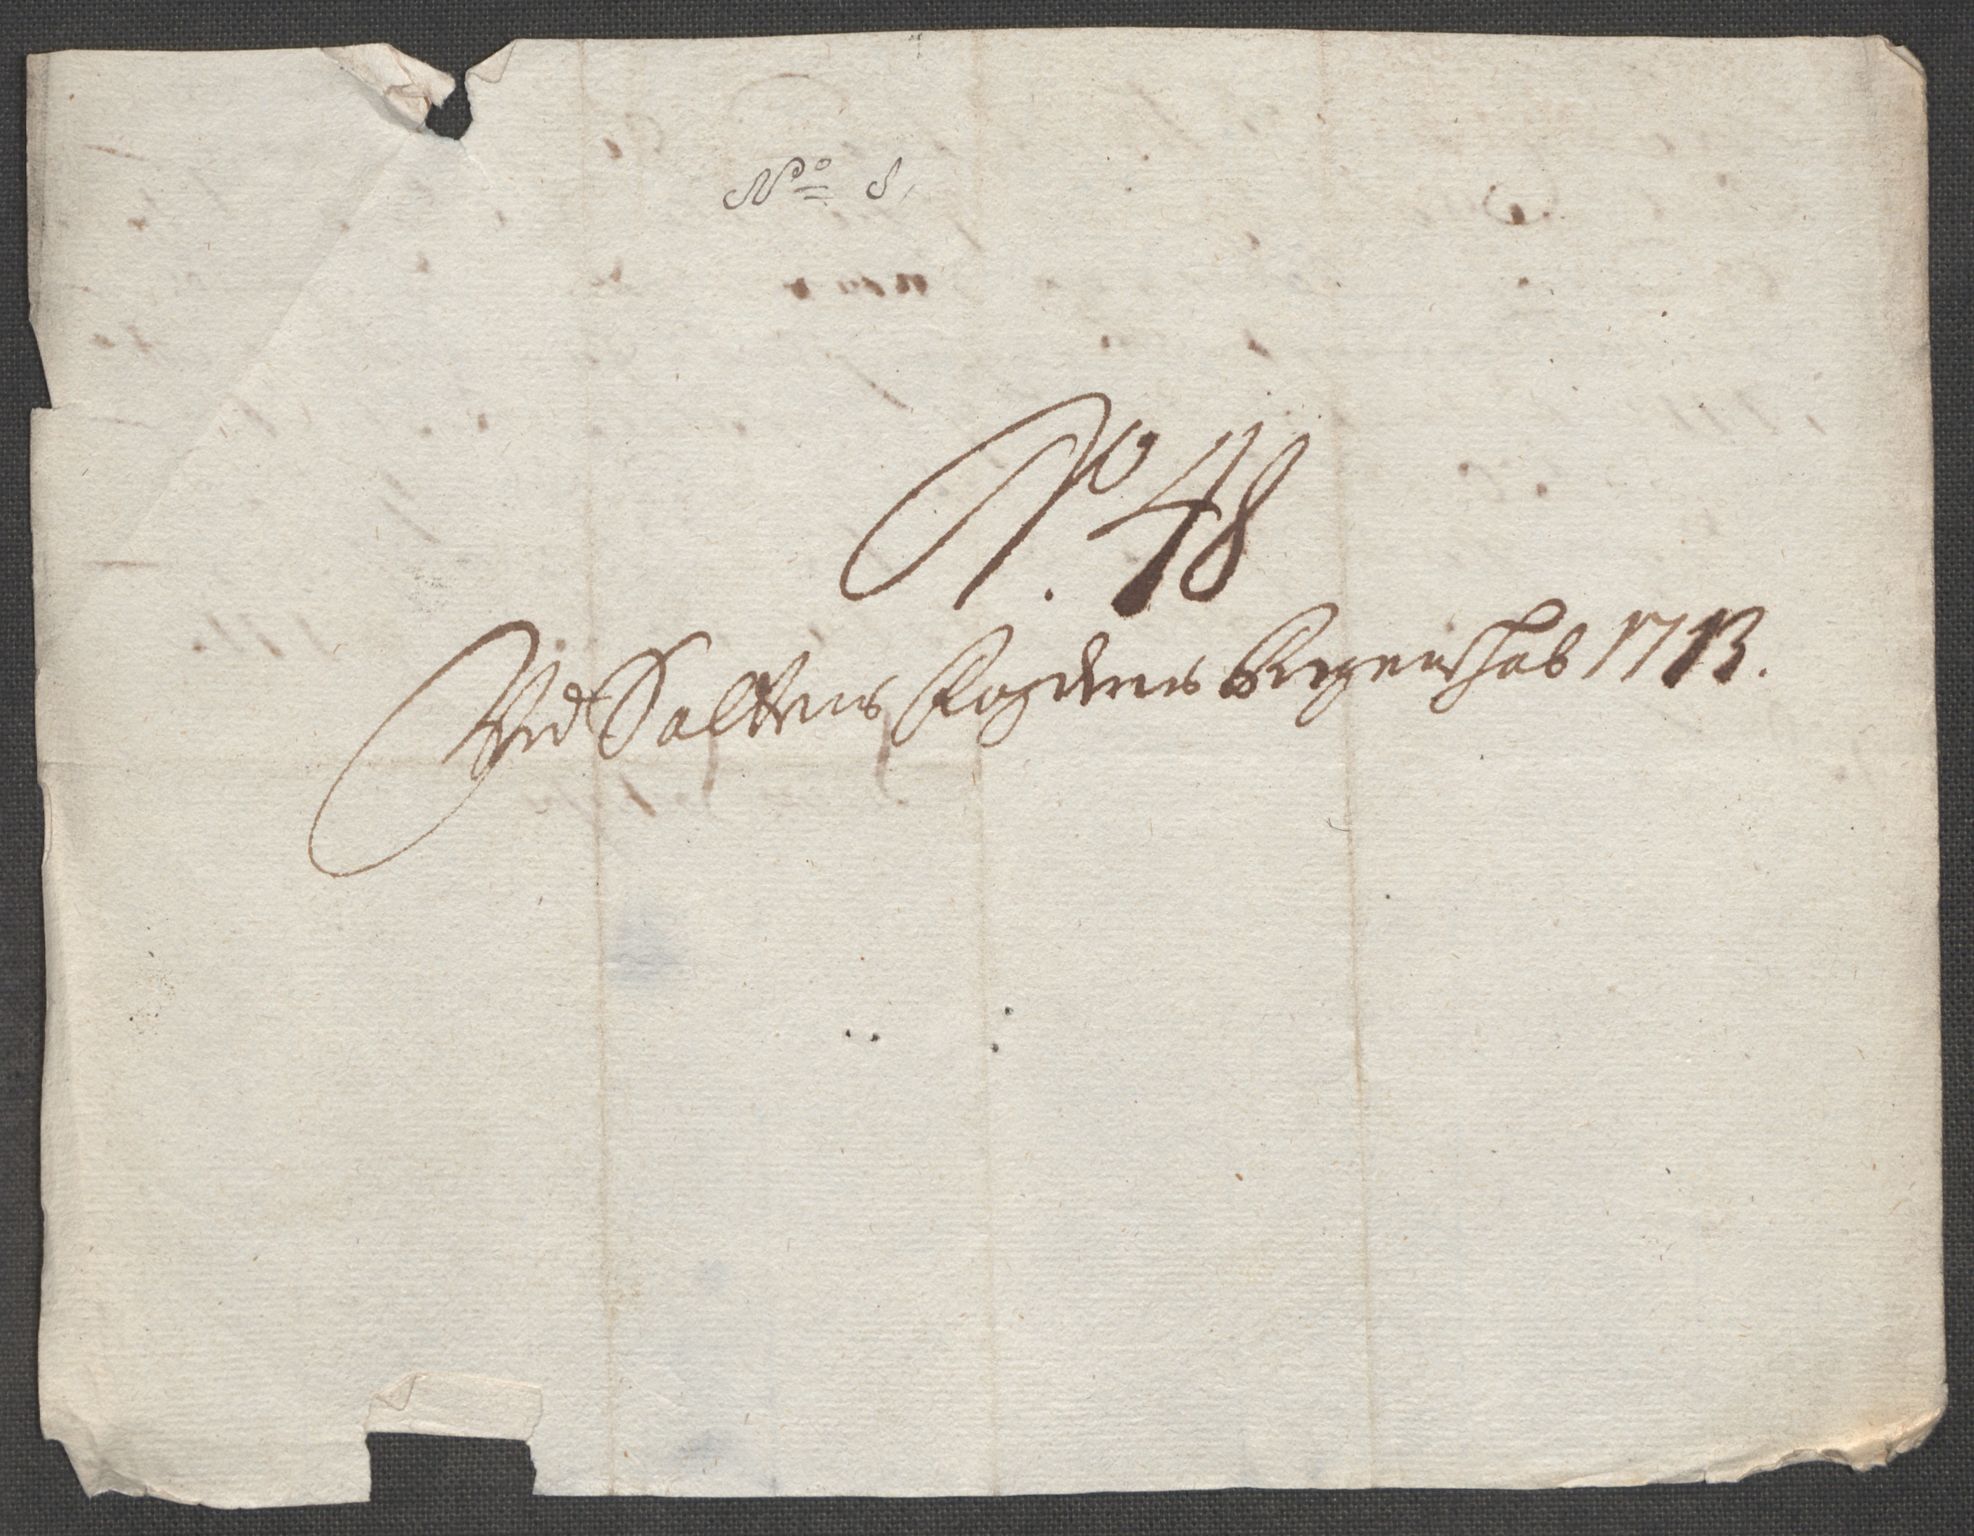 No 8,
No. 48
Ved Saltens Fogderis Regenschab 1713.